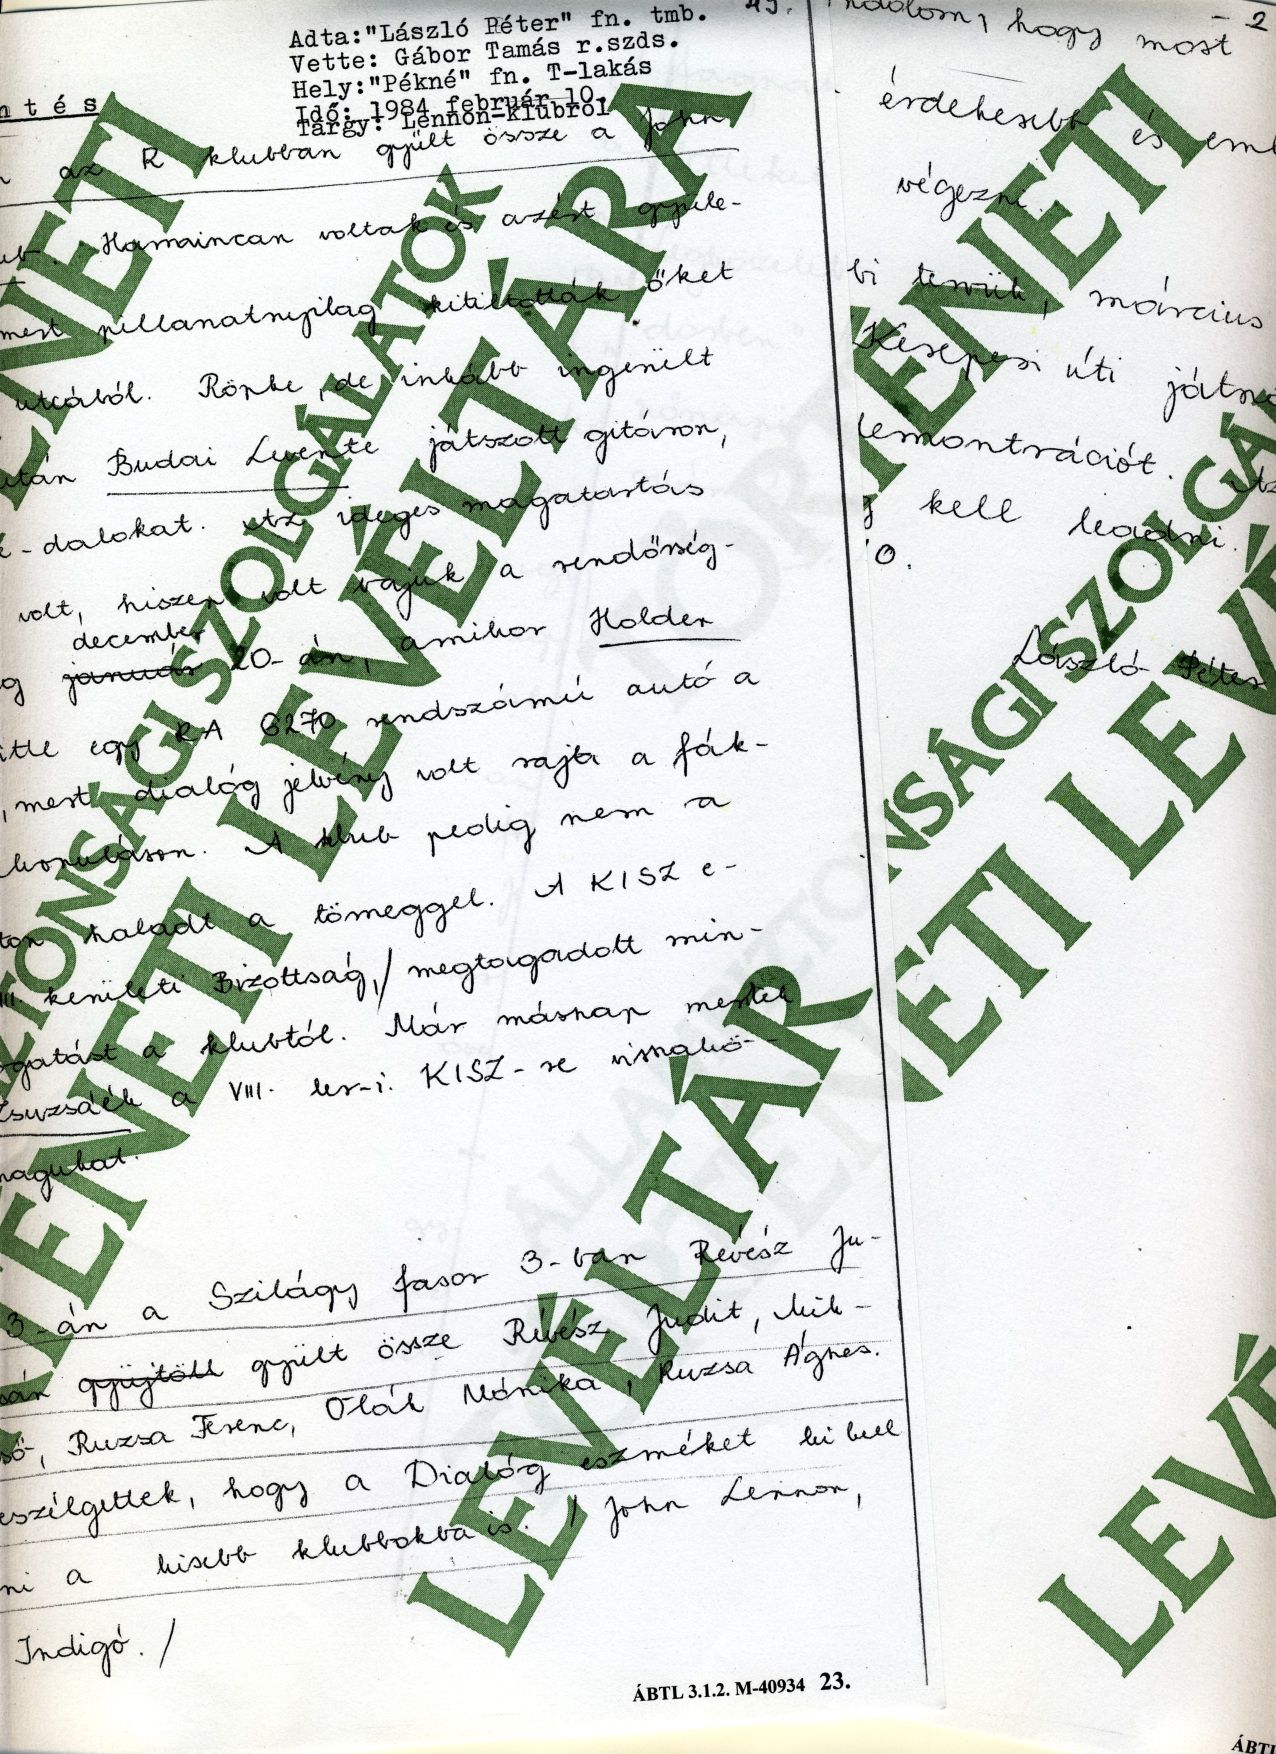 Adta:"László Péter" fn. tmb.
Vette: Gábor Tamás r.szds.
Hely:"Pékné" fn. T-lakás
Idő: 1984 február 10.
Tárgy: Lennon-klubról
ntés
az R klubban gyült össze a John
Harmincan voltak és azért gyüle-
mert pillanatnyilag kitiltották őket
utcából. Röpke, de inkább ingerült
után Budai Levente játszott gitáron,
-dalokat. Az ideges magatartás
volt, hiszen volt bajuk a rendőrség-
december
január 20-án, amikor Holder
egy RA 6270 rendszámú autó a
, mert dialóg jelvény volt rajta a fák-
vonuláson. A klub pedig nem a
haladt a tömeggel. A KISZ e-
III. kerületi Bizottság,/ megtagadott min-
ogatást a klubtól. Már másnap mentek
Zsuzsáék a VIII. ker-i. KISZ-re
magukat.
3-án a Szilágyi fasor 3-ban Révész Ju-
gyüjtött gyült össze Révész Judit, Mik-
só, Ruzsa Ferenc, Oláh Mónika, Ruzsa Ágnes.
eszélgettek, hogy a Dialóg eszméket ki kell
ni a kisebb klubbokba is. / John Lennon,
Indigó./
ÁBTL 3.1.2. M-40934 23.
- 2
hogy most
érdekesebb és emb
végezni.
bi tervük, március
Kerepesi úti játsz
demontrációt. Az
kell leadni.
László Péter
ÁBTL
TÖRTÉNETI LEVÉLTÁRA
ÁLLAMBIZTONSÁGI SZOLGÁLATOK
TÖRTÉNETI LEVÉLTÁR